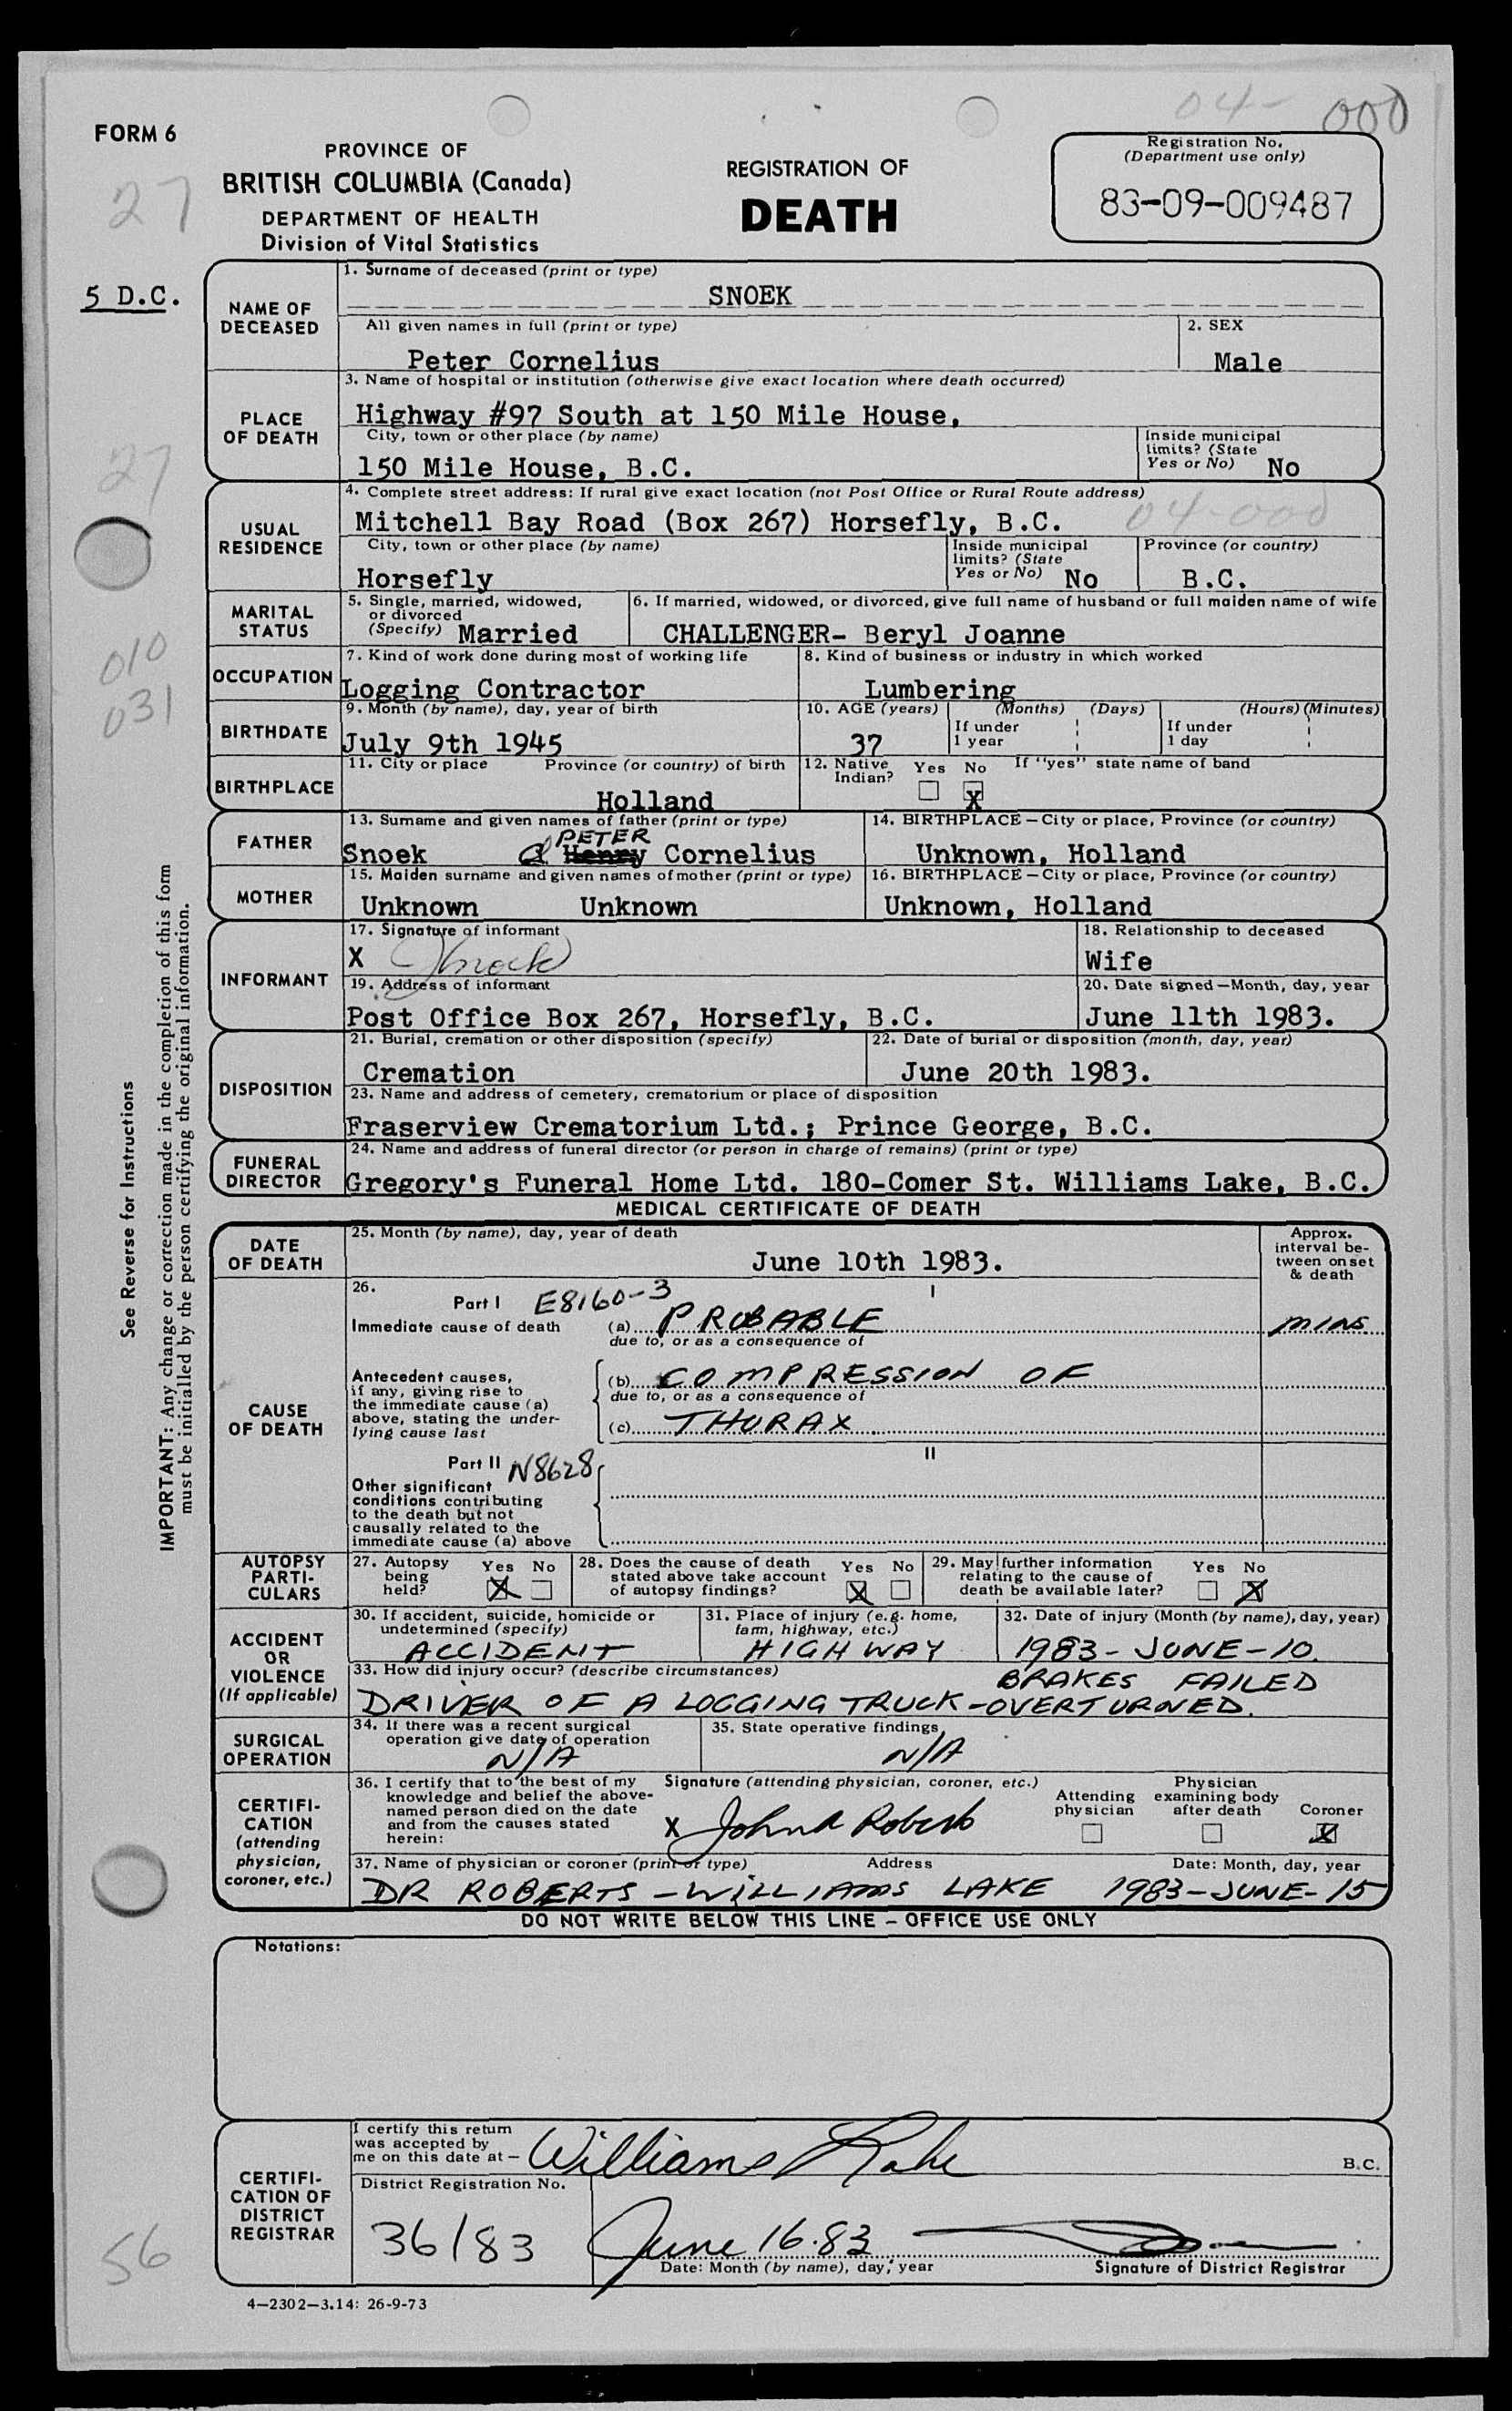 04- 000
FORM 6
PROVINCE OF
BRITISH COLUMBIA (Canada)
DEPARTMENT OF HEALTH
Division of Vital Statistics
REGISTRATION OF
DEATH
Registration No.
(Department use only)
83-09-009487
27
5 D.C.
NAME OF DECEASED
1. Surname of deceased (print or type)
SNOEK
All given names in full (print or type)
2. SEX
Peter Cornelius
Male
PLACE OF DEATH
3. Name of hospital or institution (otherwise give exact location where death occurred)
Highway #97 South at 150 Mile House,
City, town or other place (by name)
Inside municipal limits? (State Yes or No) No
150 Mile House, B.C.
27
USUAL RESIDENCE
4. Complete street address: If rural give exact location (not Post Office or Rural Route address)
Mitchell Bay Road (Box 267) Horsefly, B.C. 04-000
City, town or other place (by name)
Inside municipal limits? (State Yes or No) No
Province (or country)
Horsefly
B.C.
MARITAL STATUS
5. Single, married, widowed, or divorced (Specify) Married
6. If married, widowed, or divorced, give full name of husband or full maiden name of wife
CHALLENGER- Beryl Joanne
010
031
OCCUPATION
7. Kind of work done during most of working life
8. Kind of business or industry in which worked
Logging Contractor
Lumbering
BIRTHDATE
9. Month (by name), day, year of birth
10. AGE (years)
(Months) (Days)
(Hours) (Minutes)
If under 1 year
If under 1 day
July 9th 1945
37
BIRTHPLACE
11. City or place Province (or country) of birth
12. Native Indian? Yes No If "yes" state name of band
Holland
X
FATHER
13. Surname and given names of father (print or type)
14. BIRTHPLACE – City or place, Province (or country)
PETER
Snoek Henry Cornelius
Unknown, Holland
MOTHER
15. Maiden surname and given names of mother (print or type)
16. BIRTHPLACE – City or place, Province (or country)
Unknown Unknown
Unknown, Holland
INFORMANT
17. Signature of informant
18. Relationship to deceased
X Snoek
Wife
19. Address of informant
20. Date signed – Month, day, year
Post Office Box 267, Horsefly, B.C.
June 11th 1983.
DISPOSITION
21. Burial, cremation or other disposition (specify)
22. Date of burial or disposition (month, day, year)
Cremation
June 20th 1983.
23. Name and address of cemetery, crematorium or place of disposition
Fraserview Crematorium Ltd.; Prince George, B.C.
FUNERAL DIRECTOR
24. Name and address of funeral director (or person in charge of remains) (print or type)
Gregory's Funeral Home Ltd. 180-Comer St. Williams Lake, B.C.
See Reverse for Instructions
IMPORTANT: Any change or correction made in the completion of this form
must be initialled by the person certifying the original information.
MEDICAL CERTIFICATE OF DEATH
DATE OF DEATH
25. Month (by name), day, year of death
June 10th 1983.
Approx. interval between onset & death
CAUSE OF DEATH
26.
Part I E8160-3
I
Immediate cause of death (a) PROBABLE mins
due to, or as a consequence of
Antecedent causes, if any, giving rise to the immediate cause (a) above, stating the underlying cause last
(b) COMPRESSION OF
due to, or as a consequence of
(c) THORAX
Part II N8628
II
Other significant conditions contributing to the death but not causally related to the immediate cause (a) above
AUTOPSY PARTICULARS
27. Autopsy being held? Yes No X
28. Does the cause of death stated above take account of autopsy findings? Yes No X
29. May further information relating to the cause of death be available later? Yes No X
ACCIDENT OR VIOLENCE (If applicable)
30. If accident, suicide, homicide or undetermined (specify)
31. Place of injury (e.g. home, farm, highway, etc.)
32. Date of injury (Month (by name), day, year)
ACCIDENT
HIGHWAY
1983-JUNE-10.
33. How did injury occur? (describe circumstances)
BRAKES FAILED
DRIVER OF A LOGGING TRUCK - OVERTURNED.
SURGICAL OPERATION
34. If there was a recent surgical operation give date of operation
35. State operative findings
N/A
N/A
CERTIFICATION (attending physician, coroner, etc.)
36. I certify that to the best of my knowledge and belief the above-named person died on the date and from the causes stated herein:
Signature (attending physician, coroner, etc.)
Attending physician
Physician examining body after death
Coroner
X John A Roberts
X
37. Name of physician or coroner (print or type)
Address
Date: Month, day, year
DR ROBERTS - WILLIAMS LAKE 1983-JUNE-15
DO NOT WRITE BELOW THIS LINE – OFFICE USE ONLY
Notations:
CERTIFICATION OF DISTRICT REGISTRAR
I certify this return was accepted by me on this date at – Williams Lake B.C.
District Registration No.
36/83
June 16.83
Date: Month (by name), day, year
Signature of District Registrar
56
4–2302–3.14: 26-9-73